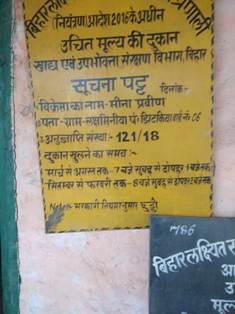 बिहार लक्षित
प्रणाली
(नियंत्रण) आदेश 2016 के अधीन
उचित मूल्य की दुकान
खाद्य एवं उपभोक्ता संरक्षण विभाग, बिहार
सूचना पट्ट दिनांक-
विक्रेता का नाम - मीना प्रवीण
पता - ग्राम - लक्षमिनीया पं० झिटकिया वार्ड नं० 06
अनुज्ञप्ति संख्या:- 121/18
दुकान खुलने का समय:-
मार्च से अगस्त तक - 7 बजे सुबह से दोपहर 1 बजे तक
सितम्बर से फरवरी तक - 8 बजे सुबह से दोपहर 2 बजे तक
Note:- सरकारी नियमानुसार छुट्टी
786
बिहार लक्षित स
आ
उ
मूल